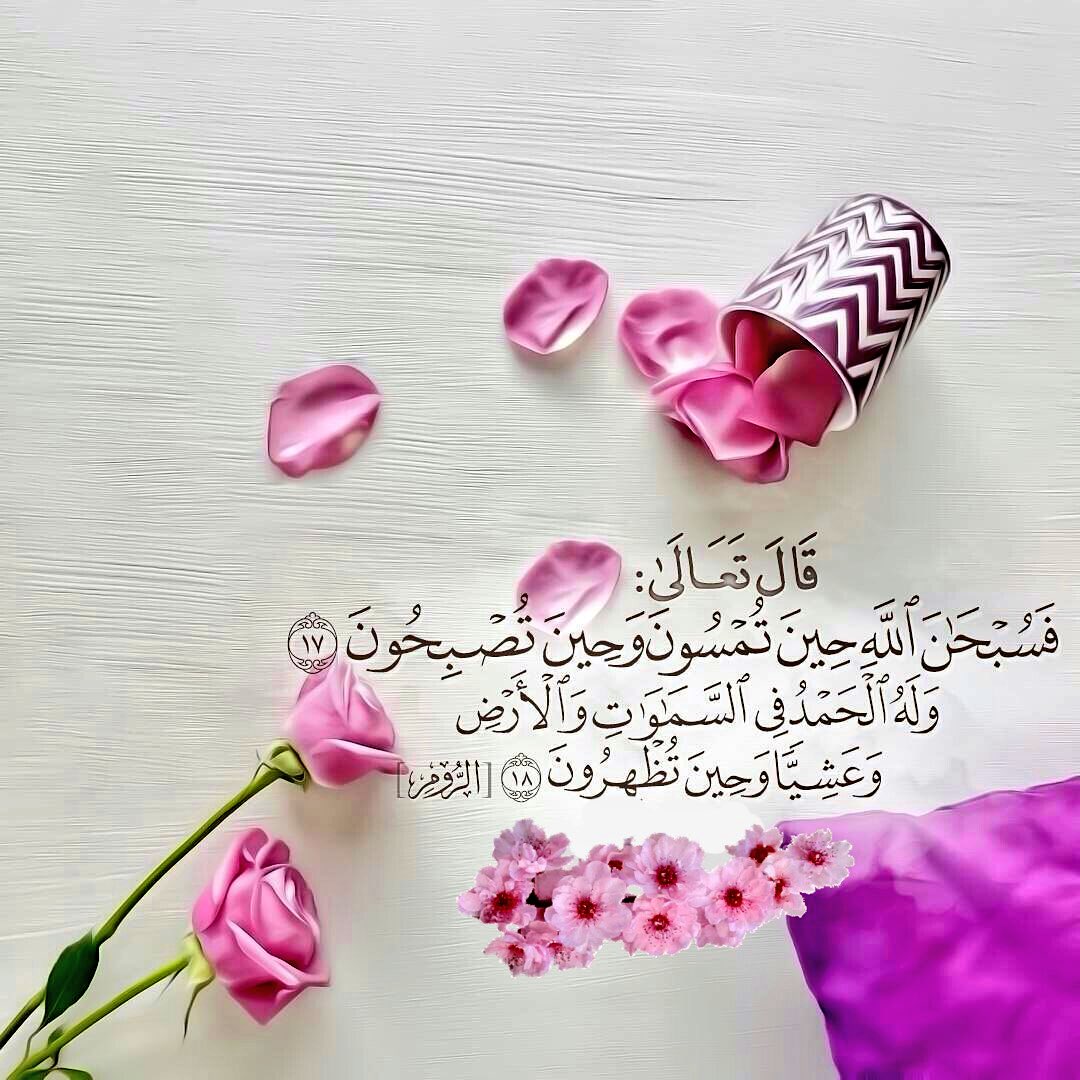 قَالَ تَعَالَىٰ:
فَسُبْحَٰنَ ٱللَّهِ حِينَ تُمْسُونَ وَحِينَ تُصْبِحُونَ ١٧
وَلَهُ ٱلْحَمْدُ فِى ٱلسَّمَٰوَٰتِ وَٱلْأَرْضِ
وَعَشِيًّا وَحِينَ تُظْهِرُونَ ١٨ [الرُّومِ]